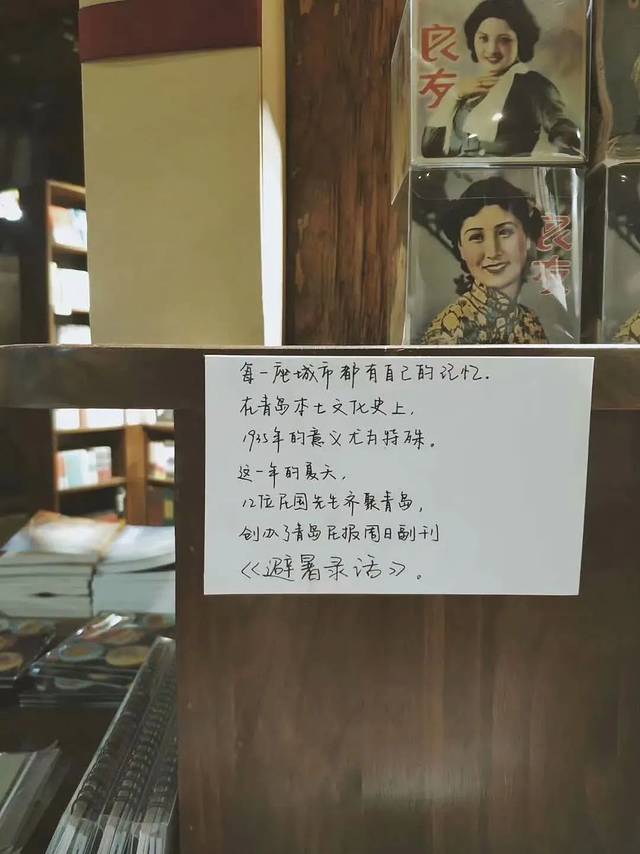 良友
良友
每一座城市都有自己的记忆.
在青岛本土文化史上,
1935年的意义尤为特殊。
这一年的夏天,
12位民国先生齐聚青岛,
创办了青岛民报周日副刊
《避暑录话》。